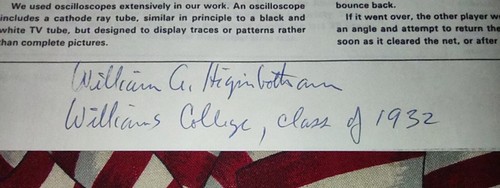 We used oscilloscopes extensively in our work. An oscilloscope
includes a cathode ray tube, similar in principle to a black and
white TV tube, but designed to display traces or patterns rather
than complete pictures.
bounce back.
If it went over, the other player w
an angle and attempt to return the
soon as it cleared the net, or after
William A. Higinbotham
Williams College, class of 1932